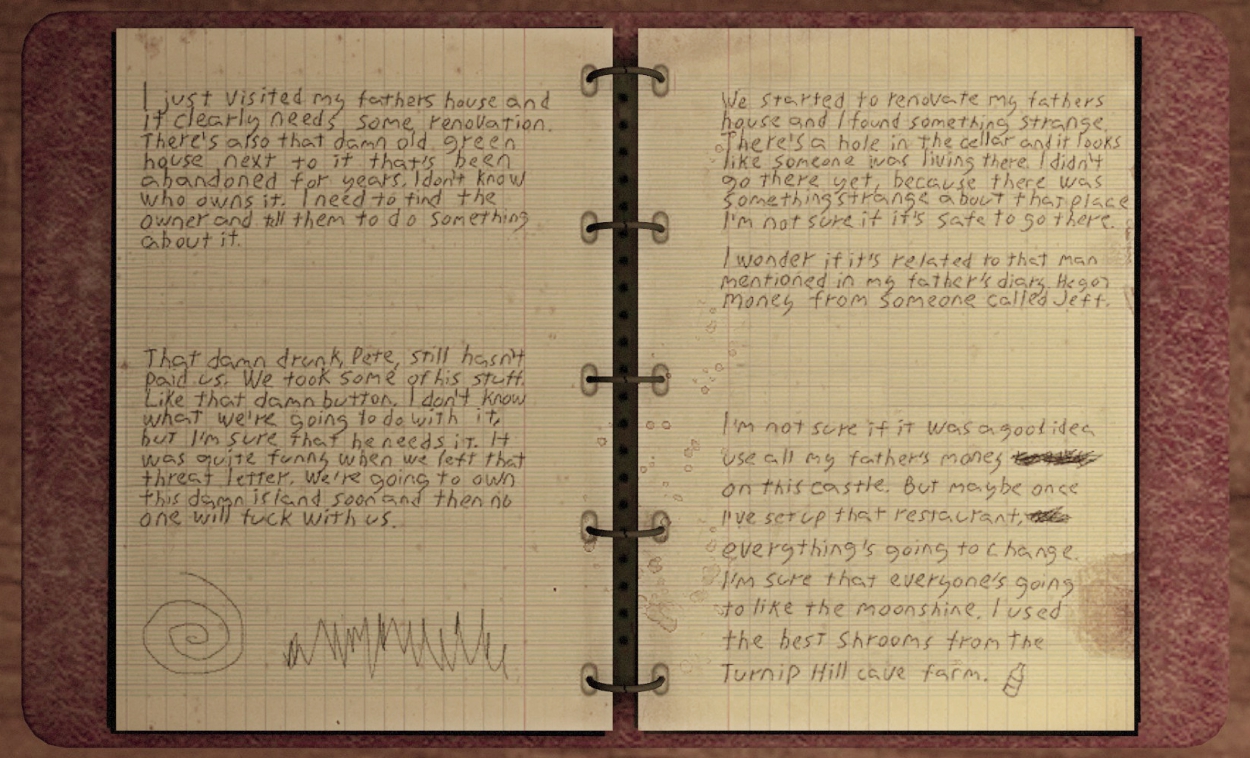 I just visited my fathers house and
it clearly needs some renovation.
There's also that damn old green
house next to it that's been
abandoned for years. I don't know
who owns it. I need to find the
owner and tell them to do something
about it.
That damn drunk, Pete, still hasn't
paid us. We took some of his stuff.
Like that damn button. I don't know
what we're going to do with it,
but I'm sure that he needs it. It
was quite funny when we left that
threat letter. We're going to own
this damn island soon and then no
one will fuck with us.
We started to renovate my fathers
house and I found something strange.
There's a hole in the cellar and it looks
like someone was living there. I didn't
go there yet, because there was
something strange about that place
I'm not sure if it's safe to go there.
I wonder if it's related to that man
mentioned in my father's diary. He got
money from someone called Jeff.
I'm not sure if it was a good idea
use all my father's money
on this castle. But maybe once
I've setup that restaurant,
everything's going to change.
I'm sure that everyone's going
to like the moonshine. I used
the best shrooms from the
Turnip Hill cave farm.